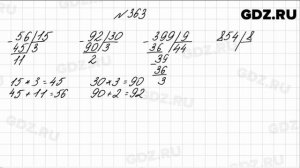 GDZ.RU
№ 363
- 56 | 15
45 | 3
11
- 92 | 30
90 | 3
2
- 399 | 9
36 | 44
- 39
36
3
854 | 8
15 * 3 = 45
45 + 11 = 56
30 * 3 = 90
90 + 2 = 92
GDZ.RU